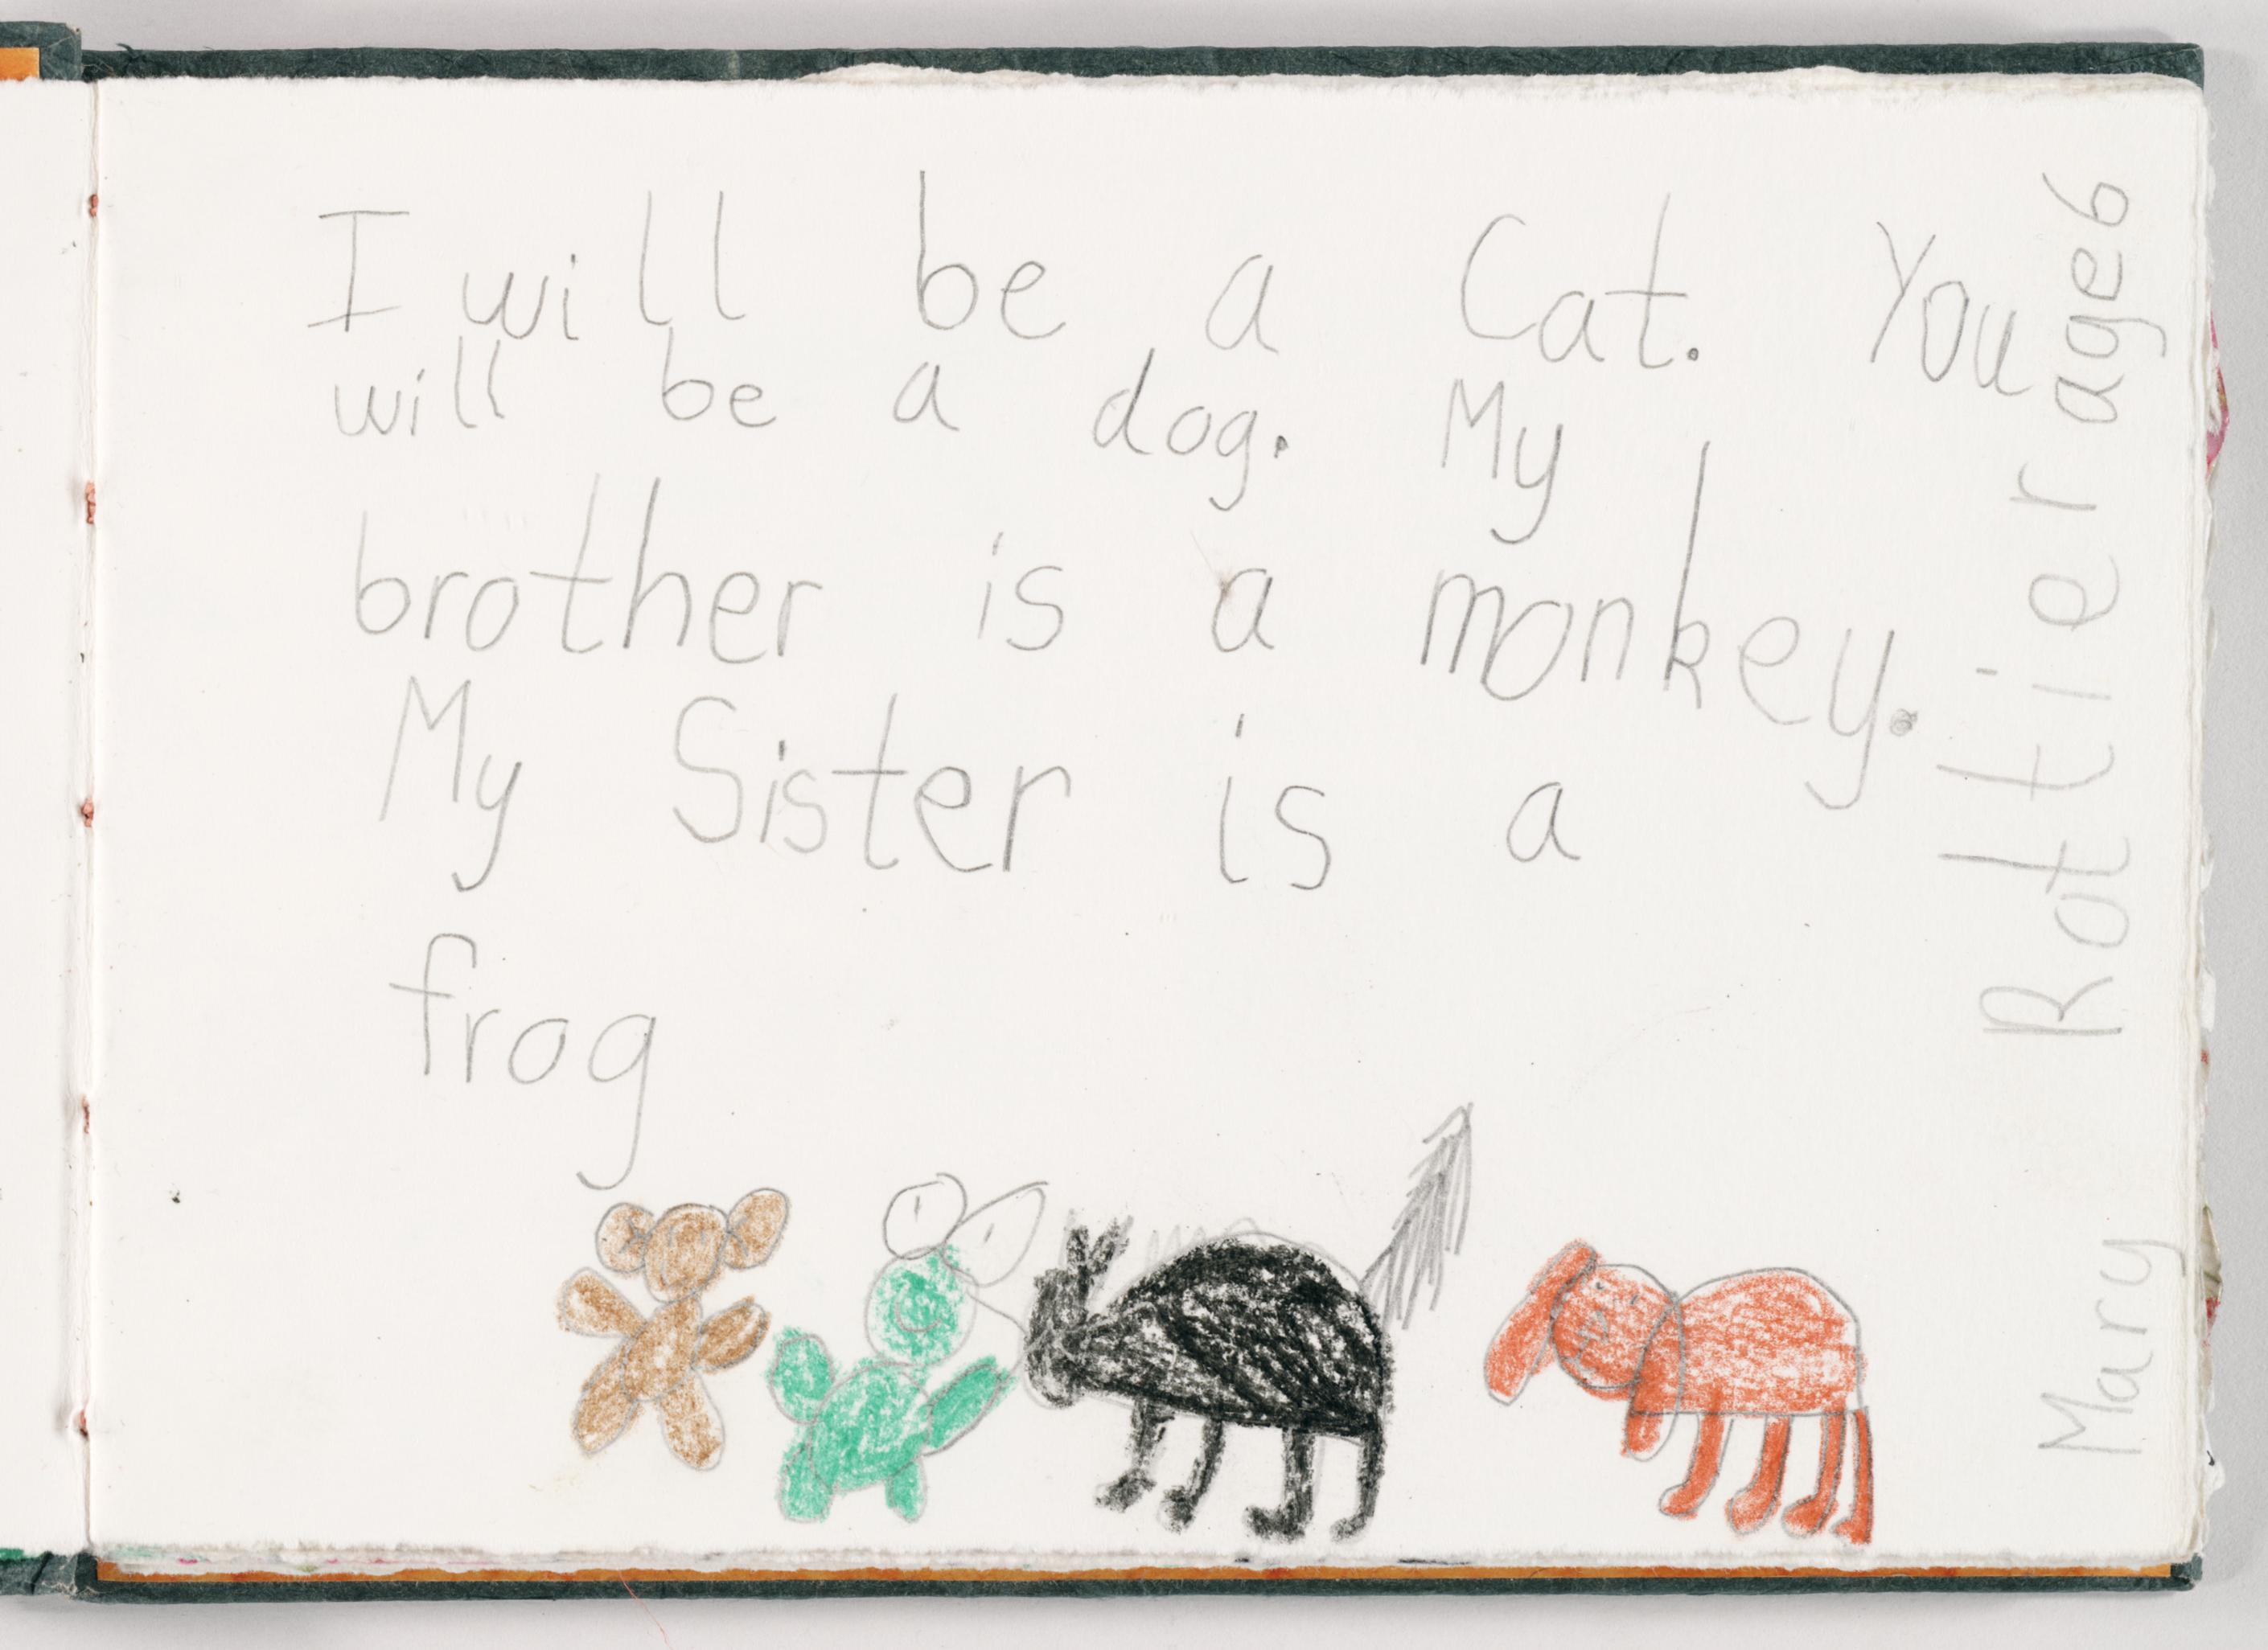 I will be a Cat. You
will be a dog. My
brother is a monkey.
My Sister is a
frog
Mary Rottier age 6